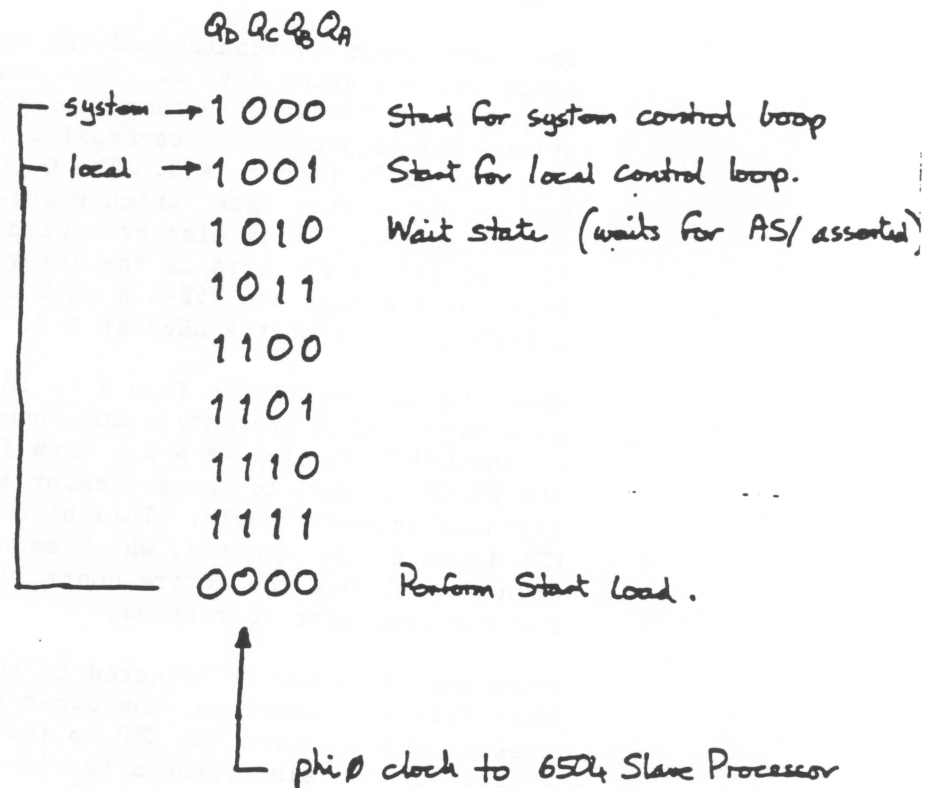 QD QC QB QA
system → 1000 Start for system control loop
local → 1001 Start for local control loop.
1010 Wait state (waits for AS/ asserted)
1011
1100
1101
1110
1111
0000 Perform Start Load.
phi0 clock to 6504 Slave Processor